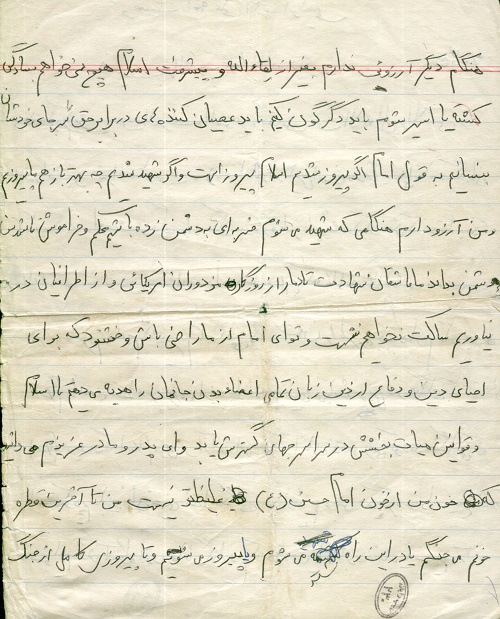 هنگام دیگر آرزوئی ندارم بغیر از لقاءالله و پیشرفت اسلام هیچ نمی‌خواهم بسادگی
کشته یا اسیر شوم باید دگرگون کنم باید عصیان کننده‌ای در برابر حق سر جای خودشان
بنشانیم به قول امام اگر پیروز شدیم اسلام پیروز است و اگر شهید شدیم چه بهتر باز هم پیروزیم
و من آرزو دارم هنگامی که شهید می شوم ضربه‌ای به دشمن زده باشم و فراموش ناشدنی
دشمن بداند ما تا شهادت تا دمار از روزگار مزدوران امریکائی و از اطرافیان در
نیاوریم ساکت نخواهیم نشست و توای امام از ما راضی باش و خشنود که برای
احیای دین و دفاع از دین زبان تمامی اعضاء بدن جانمان را هدیه می دهیم تا اسلام
و قوانین حیات بخشش در سراسر جهان گسترش یابد و ای پدر و مادر عزیزم می دانید
که خون من از خون امام حسین (ع) غلیظتر نیست من تا آخرین قطره
خونم می جنگم یا در این راه می شوم و یا پیروز می شویم و تا پیروزی کامل از جنگ